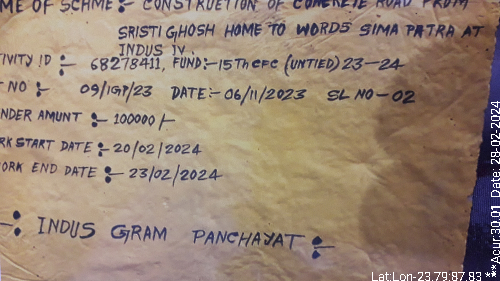 ME OF SCHME:- CONSTRUCTION OF CONCRETE ROAD FROM
SRISTI GHOSH HOME TO WORDS SIMA PATRA AT
INDUS IV.
TIVITY ID :- 68278411, FUND:- 15Th CFC (UNTIED) 23-24
T NO :- 09/IGP/23 DATE:- 06/11/2023 SL NO-02
NDER AMUNT :- 100000/-
RK START DATE :- 20/02/2024
ORK END DATE :- 23/02/2024
-: INDUS GRAM PANCHAYAT :-
Lat:Lon-23.79:87.83 *** Acur:30.01 Date: 28-02-2024